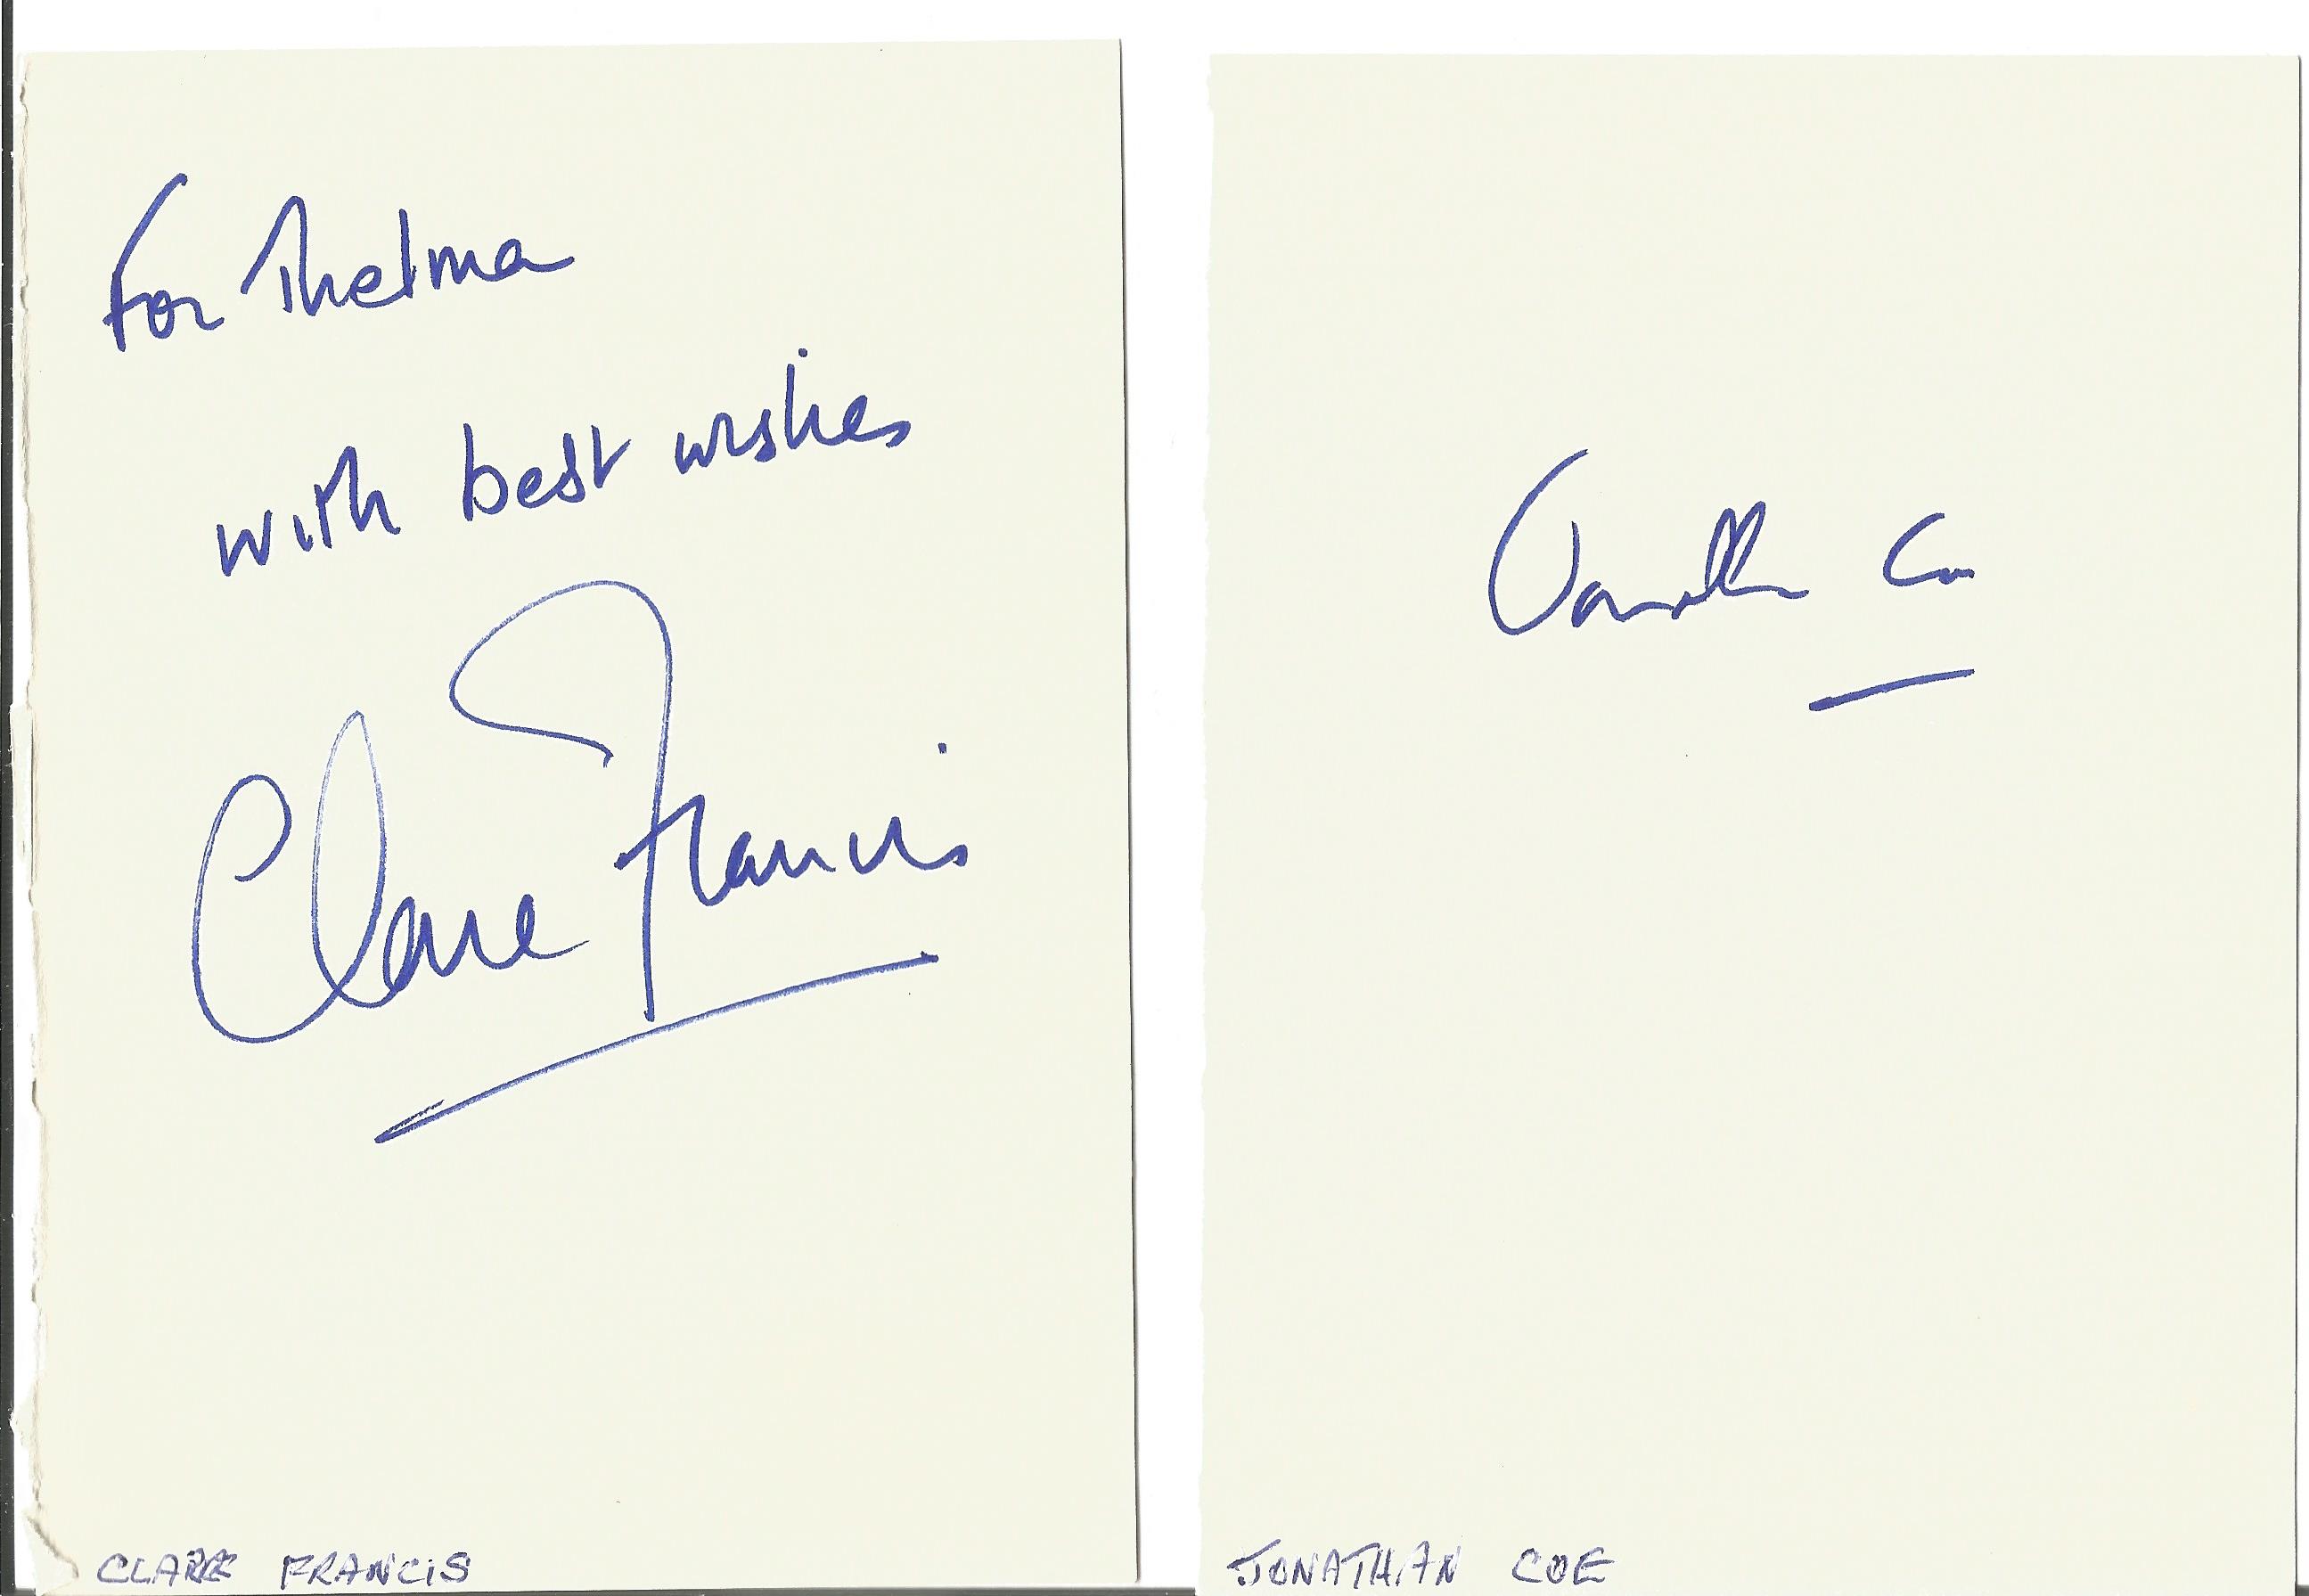 For Thelma
with best wishes
Clare Francis
CLARE FRANCIS
Jonathan Coe
JONATHAN COE